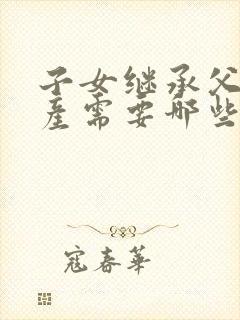 子女继承父
产需要哪些
寇春华